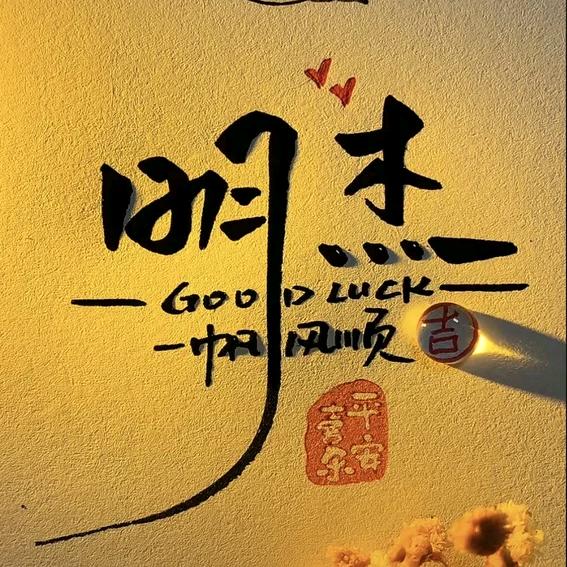 明杰
GOOD LUCK
一帆风顺
吉
平安
喜乐